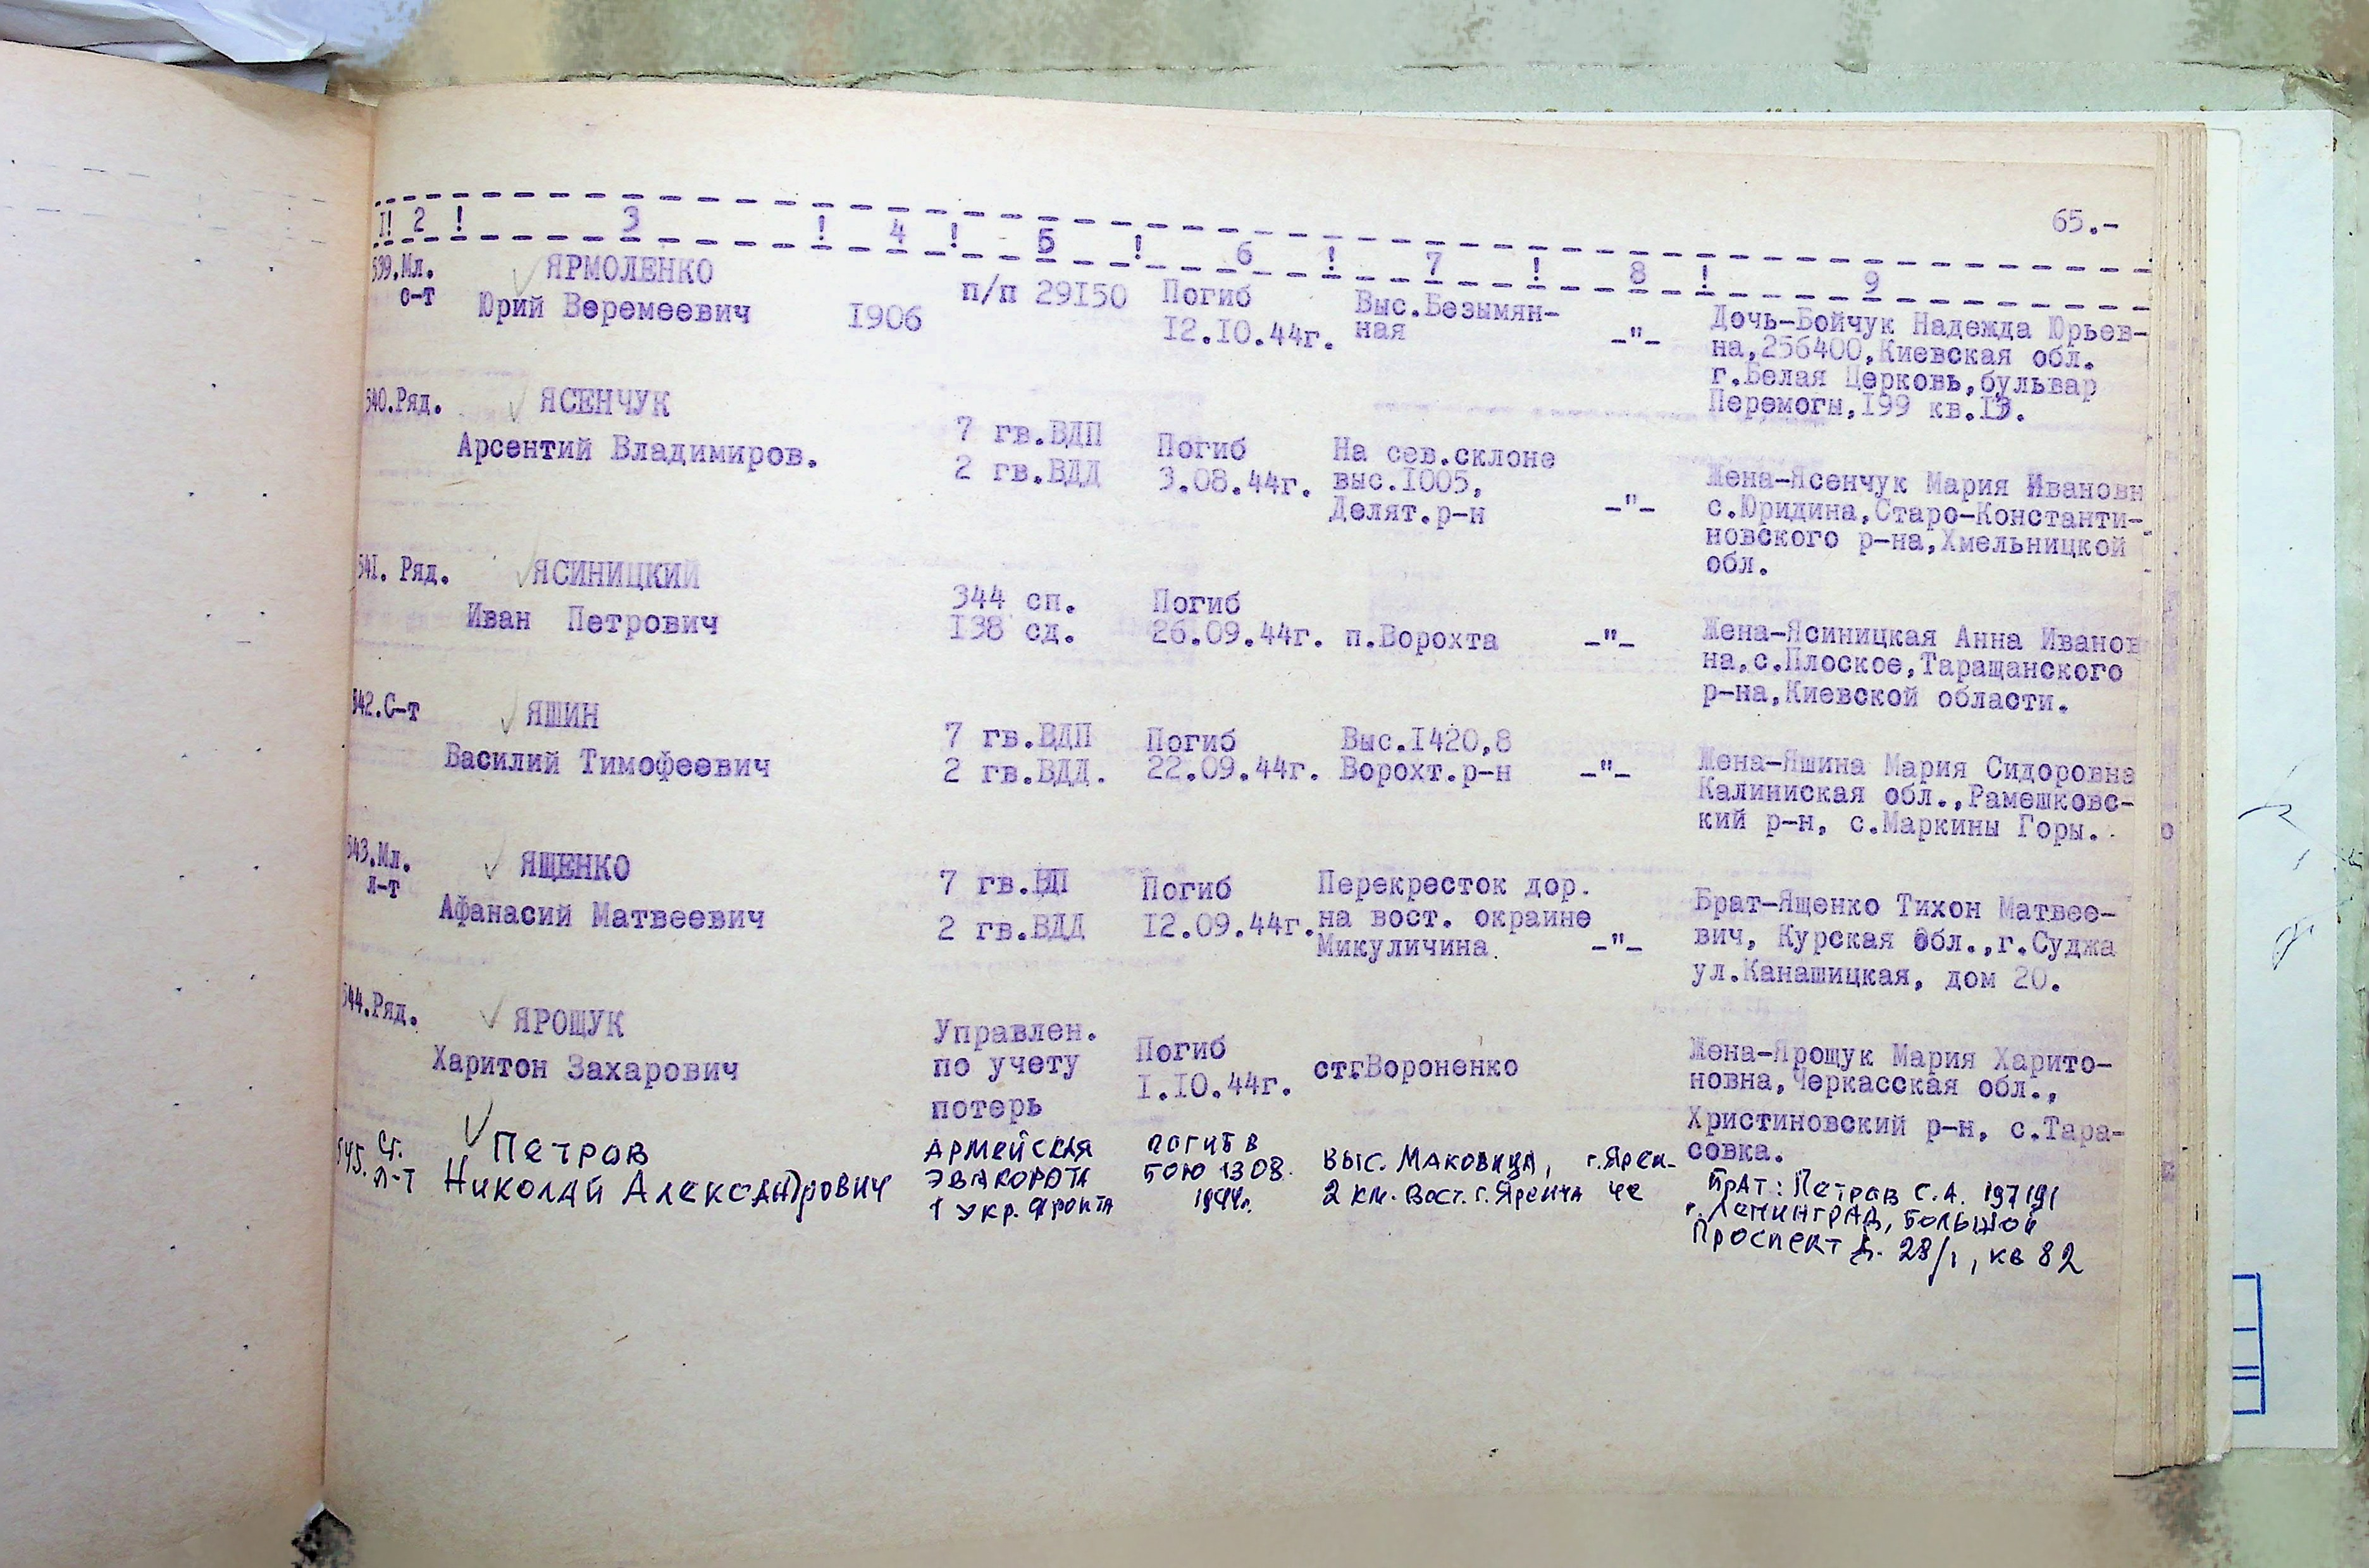 65.-
I! 2 ! 3 ! 4 ! 5 ! 6 ! 7 ! 8 ! 9
539.Мл. с-т
ЯРМОЛЕНКО
Юрий Веремеевич
1906
п/п 29150
Погиб
12.10.44г.
Выс.Безымян-
ная
-"-
Дочь-Бойчук Надежда Юрьев-
на,256400,Киевская обл.
г.Белая Церковь,бульвар
Перемоги,199 кв.13.
540.Ряд.
ЯСЕНЧУК
Арсентий Владимиров.
7 гв.ВДП
2 гв.ВДД
Погиб
3.08.44г.
На сев.склоне
выс.1005,
Делят.р-н
-"-
Жена-Ясенчук Мария Ивановн
с.Юридина,Старо-Константи-
новского р-на,Хмельницкой
обл.
541. Ряд.
ЯСИНИЦКИЙ
Иван Петрович
344 сп.
138 сд.
Погиб
26.09.44г.
п.Ворохта
-"-
Жена-Ясиницкая Анна Иванов
на,с.Плоское,Таращанского
р-на,Киевской области.
542.С-т
ЯШИН
Василий Тимофеевич
7 гв.ВДП
2 гв.ВДД.
Погиб
22.09.44г.
Выс.1420,8
Ворохт.р-н
-"-
Жена-Яшина Мария Сидоровна
Калиниская обл.,Рамешковс-
кий р-н, с.Маркины Горы.
543.Мл.
л-т
ЯЩЕНКО
Афанасий Матвеевич
7 гв.ВДП
2 гв.ВДД
Погиб
12.09.44г.
Перекресток дор.
на вост. окраине
Микуличина
-"-
Брат-Ященко Тихон Матвее-
вич, Курская обл.,г.Суджа
ул.Канашицкая, дом 20.
544.Ряд.
ЯРОЩУК
Харитон Захарович
Управлен.
по учету
потерь
Погиб
1.10.44г.
ст.Вороненко
Жена-Ярощук Мария Харито-
новна,Черкасская обл.,
Христиновский р-н, с.Тара-
совка.
545. Ст.
л-т
Петров
Николай Александрович
Армейская
эвакорота
1 Укр. фронта
погиб в
бою 13 08.
1944г.
Выс. Маковица,
2 км. вост. г. Яремча
г.Ярем-
че
Брат: Петров С.А. 197191
г. Ленинград, Большой
Проспект д. 28/1, кв 82